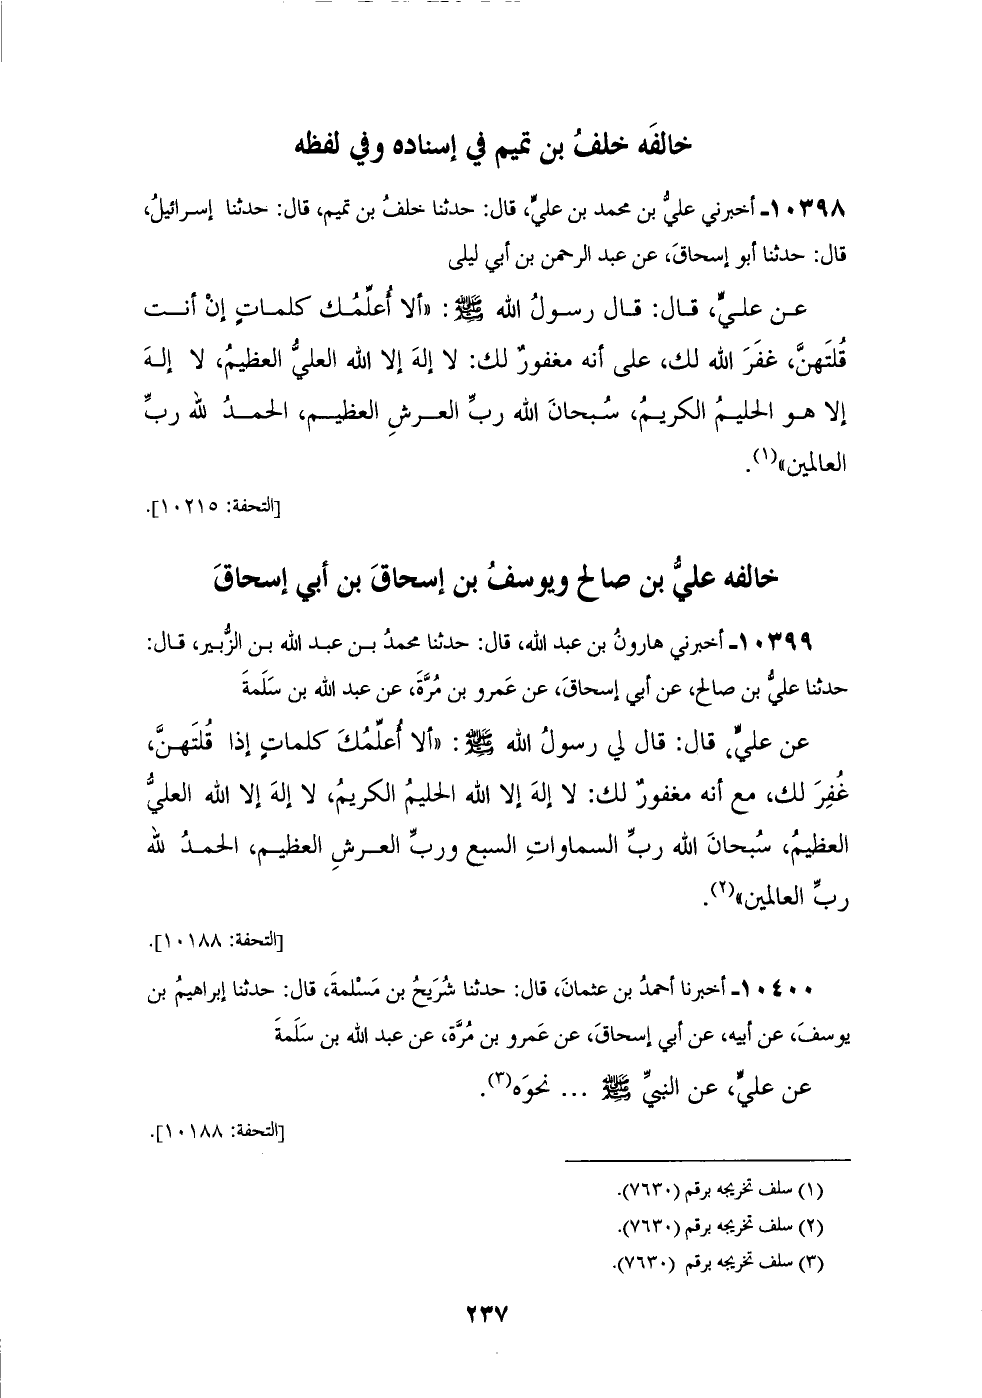 خالفَه خلفُ بن تميم في إسناده وفي لفظه
١٠٣٩٨ـ أخبرني عليُّ بن محمد بن عليٍّ، قال: حدثنا خلفُ بن تميم، قال: حدثنا إسرائيلُ،
قال: حدثنا أبو إسحاقَ، عن عبد الرحمن بن أبي ليلى
عن عليٍّ، قال: قال رسولُ الله ﷺ: «ألا أُعلِّمُك كلماتٍ إنْ أنت
قُلتَهنَّ، غفَرَ الله لك، على أنه مغفورٌ لك: لا إلهَ إلا الله العليُّ العظيمُ، لا إلهَ
إلا هو الحليمُ الكريمُ، سُبحانَ الله ربِّ العرشِ العظيم، الحمدُ لله ربِّ
العالمين»(١).
[التحفة: ١٠٢١٥].
خالفه عليُّ بن صالح ويوسفُ بن إسحاقَ بن أبي إسحاقَ
١٠٣٩٩ـ أخبرني هارونُ بن عبد الله، قال: حدثنا محمدُ بن عبد الله بن الزُّبير، قال:
حدثنا عليُّ بن صالح، عن أبي إسحاقَ، عن عَمرو بن مُرَّةَ، عن عبد الله بن سَلَمةَ
عن عليٍّ، قال: قال لي رسولُ الله ﷺ: «ألا أُعلِّمُكَ كلماتٍ إذا قُلتَهنَّ،
غُفِرَ لك، مع أنه مغفورٌ لك: لا إلهَ إلا الله الحليمُ الكريمُ، لا إلهَ إلا الله العليُّ
العظيمُ، سُبحانَ الله ربِّ السماواتِ السبع وربِّ العرشِ العظيم، الحمدُ لله
ربِّ العالمين»(٢).
[التحفة: ١٠١٨٨].
١٠٤٠٠ـ أخبرنا أحمدُ بن عثمانَ، قال: حدثنا شُرَيحُ بن مَسْلمةَ، قال: حدثنا إبراهيمُ بن
يوسفَ، عن أبيه، عن أبي إسحاقَ، عن عَمرو بن مُرَّة، عن عبد الله بن سَلَمةَ
عن عليٍّ، عن النبيِّ ﷺ ... نحوَه(٣).
[التحفة: ١٠١٨٨].
(١) سلف تخريجه برقم (٧٦٣٠).
(٢) سلف تخريجه برقم (٧٦٣٠).
(٣) سلف تخريجه برقم (٧٦٣٠).
٢٣٧